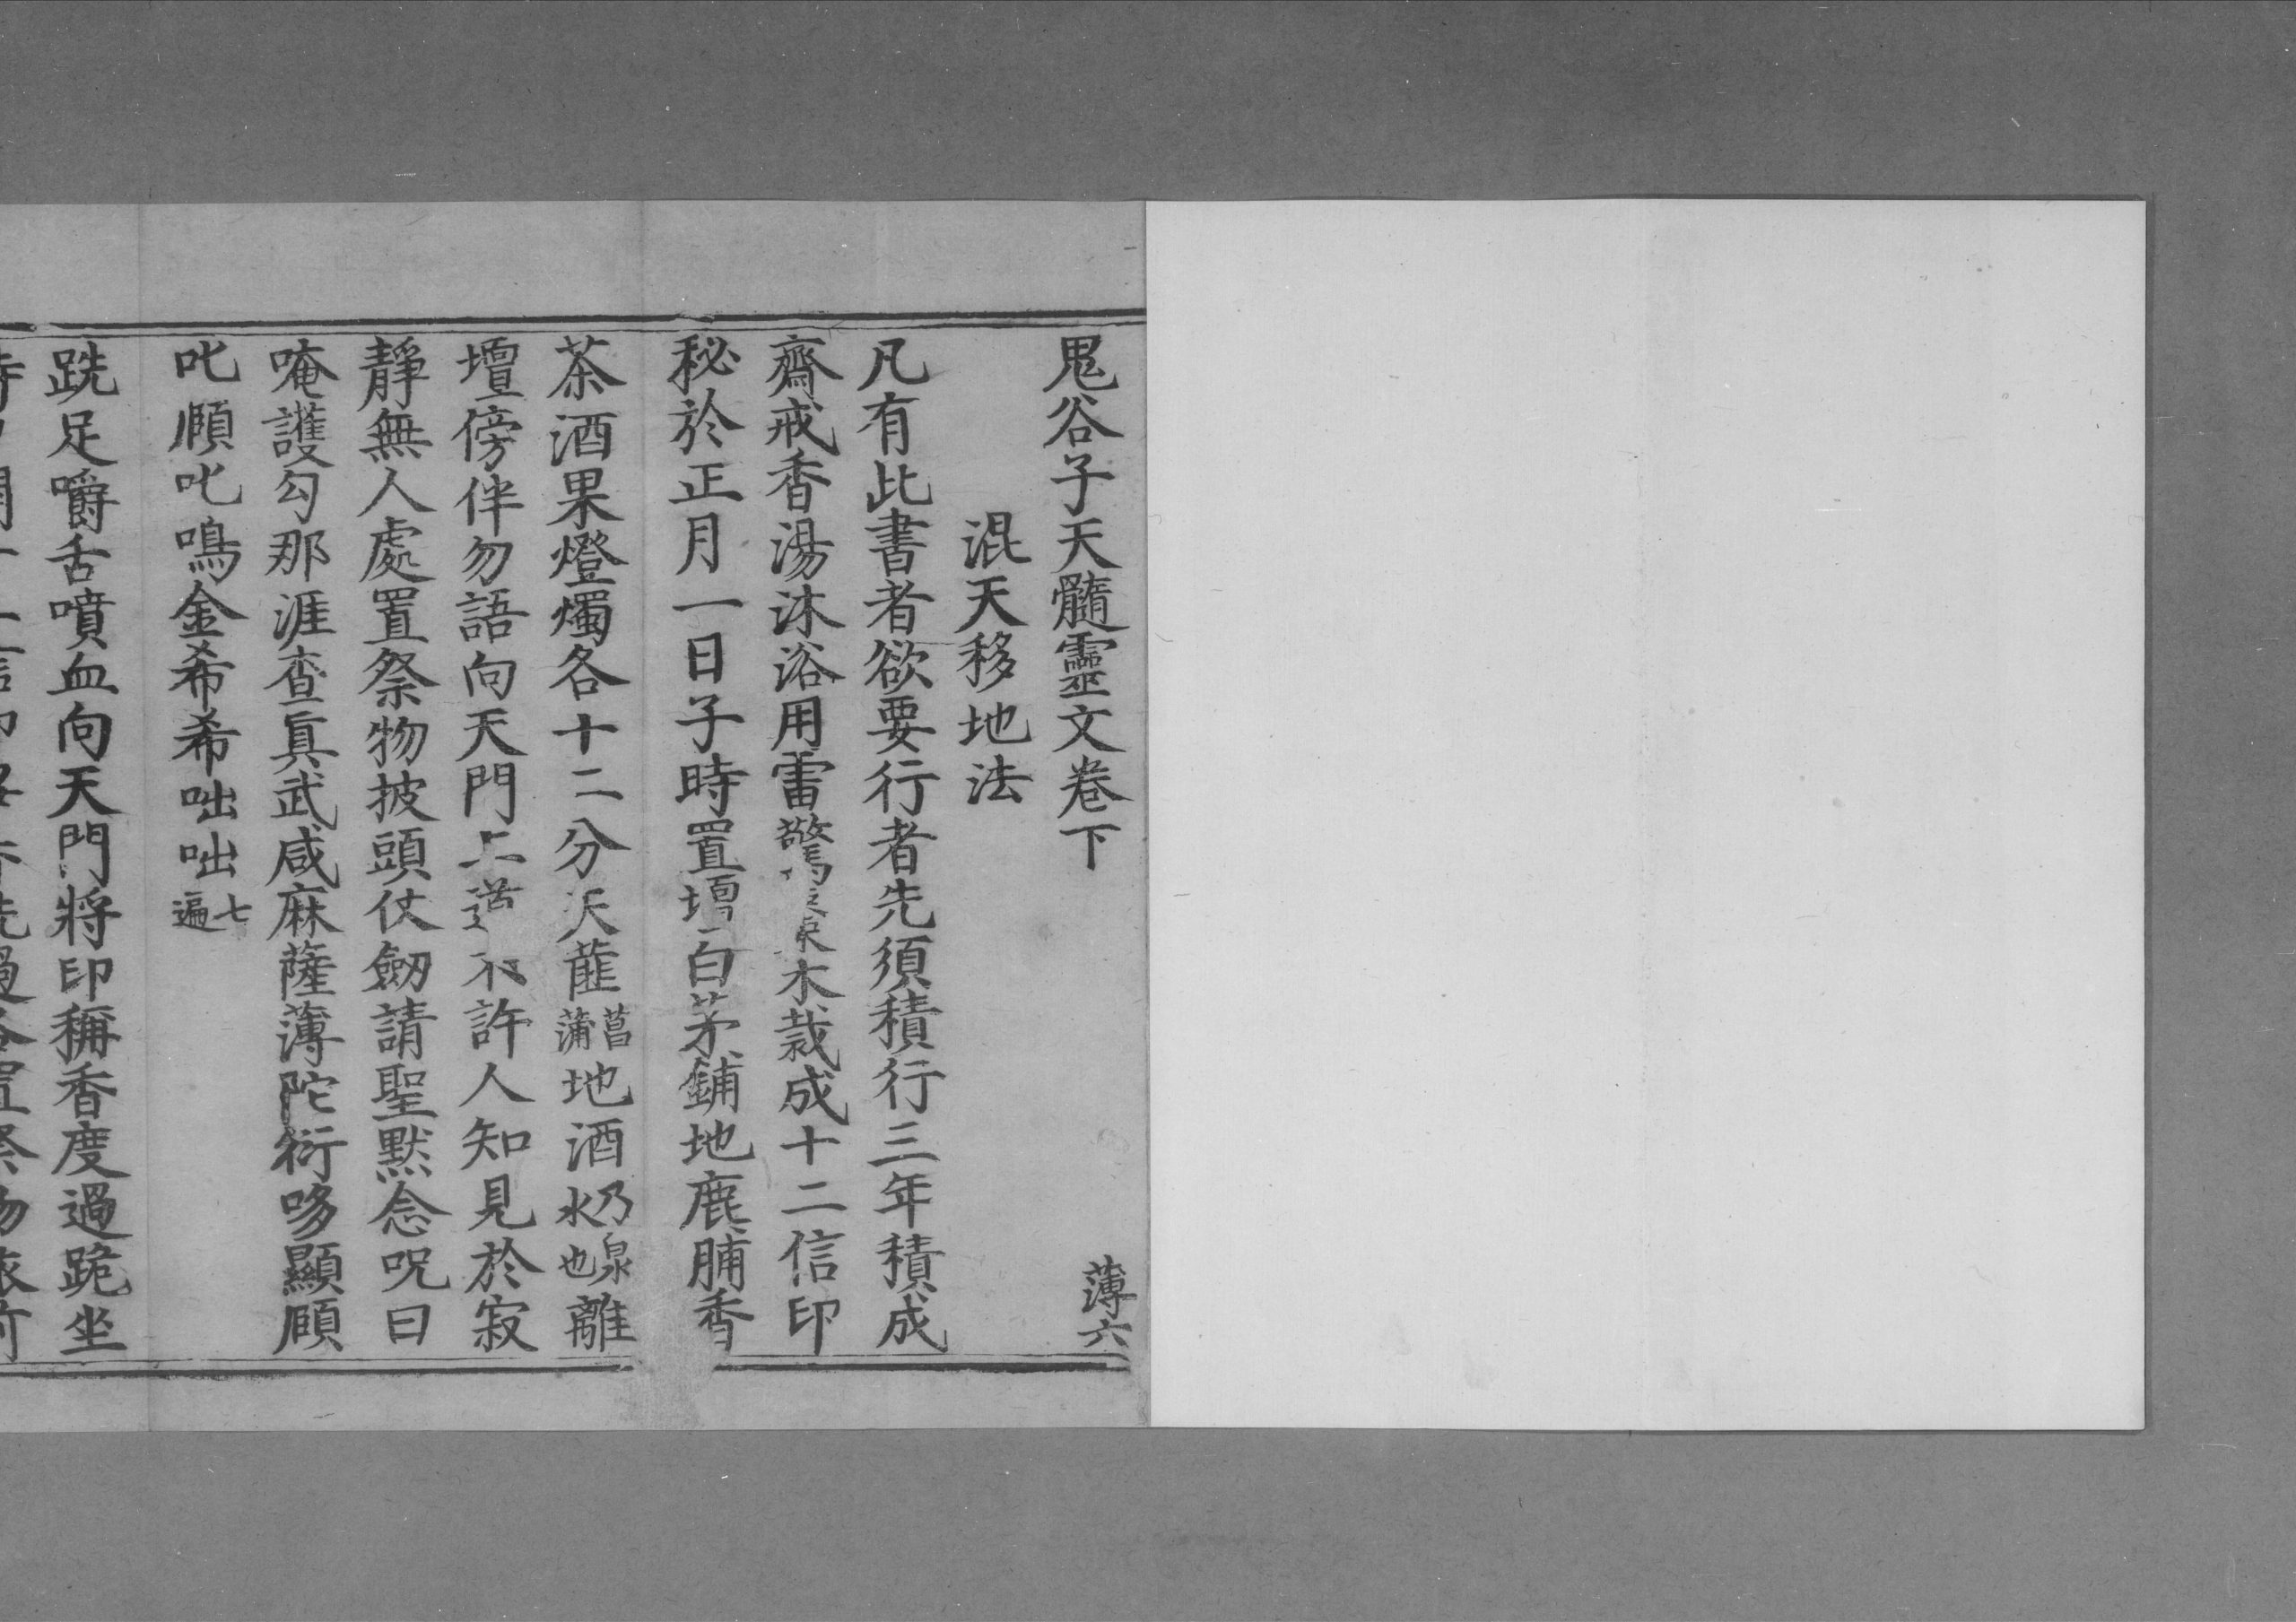 鬼谷子天髓靈文卷下　薄六
混天移地法
凡有此書者欲要行者先須積行三年積成
齋戒香湯沐浴用雷驚棗木裁成十二信印
秘於正月一日子時置壇白茅鋪地鹿脯香
茶酒果燈燭各十二分天蓲菖蒲地酒乃泉水也離
壇傍伴勿語向天門上道不許人知見於寂
靜無人處置祭物披頭仗劒請聖默念呪曰
唵護勾那涯查真武咸麻薩薄陀衍哆顯頋
叱頋叱鳴金希希咄咄七遍
跣足嚼舌噴血向天門將印稱香度過跪坐